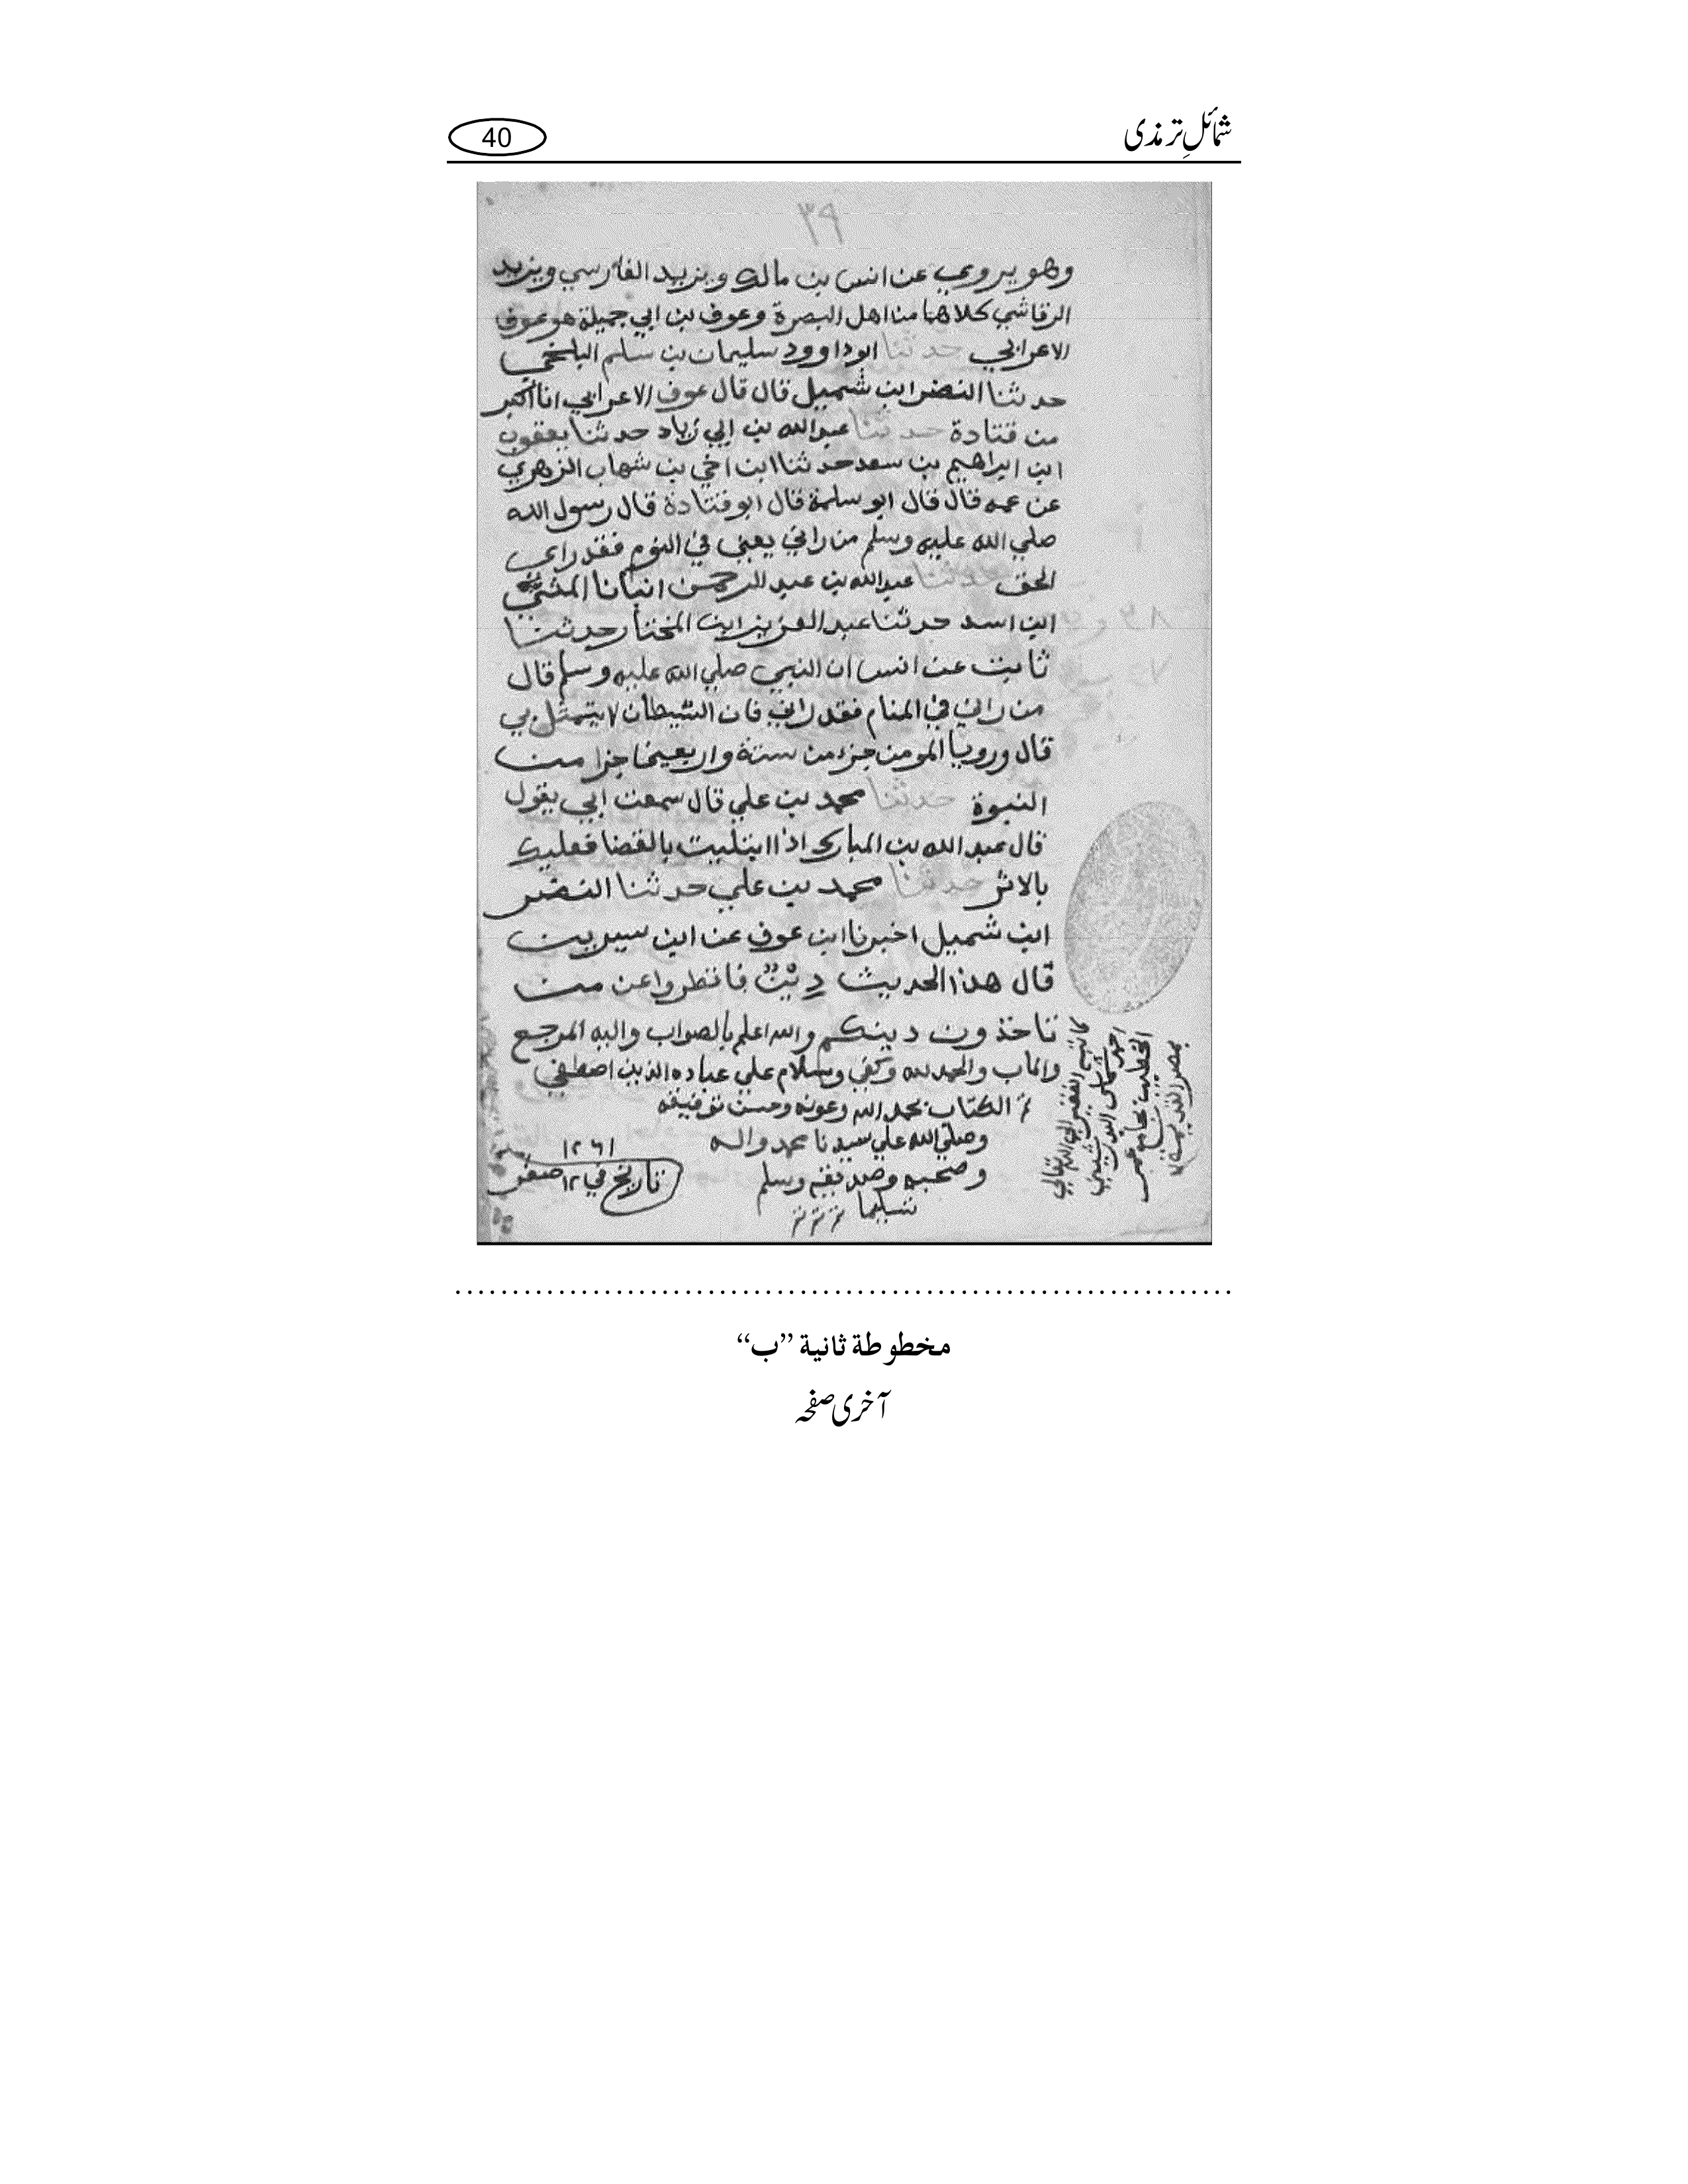 شمائلِ ترمذی
40
٣٩
وهو يروي عن انس بن مالك ويزيد الفارسي ويزيد
الرقاشي كلاهما من اهل البصرة وعوف بن ابي جميلة هو عوف
الاعرابي حدثنا ابوداوود سليمان بن سلم البلخي
حدثنا النضر ابن شميل قال قال عوف الاعرابي انا اكبر
من قتادة حدثنا عبدالله بن ابي زياد حدثنا يعقوب
ابن ابراهيم بن سعد حدثنا ابن اخي بن شهاب الزهري
عن عمه قال قال ابو سلمة قال ابو قتادة قال رسول الله
صلي الله عليه وسلم من راني يعني في النوم فقد راي
الحق حدثنا عبدالله بن عبد الرحمن انبانا المثني
ابن اسد حدثنا عبد العزيز ابن المختار حدثنا
ثابت عن انس ان النبي صلي الله عليه وسلم قال
من راني في المنام فقد راني فان الشيطان لا يتمثل بي
قال ورويا المومن جزء من ستة واربعين جزا من
النبوة حدثنا محمد بن علي قال سمعت ابي يقول
قال عبد الله بن المبارك اذا ابتليت بالقضا فعليك
بالاثر حدثنا محمد بن علي حدثنا النضر
ابن شميل اخبرنا ابن عوف عن ابن سيرين
قال هذا الحديث دِيْنٌ فانظروا عن من
تاخذون دينكم والله اعلم بالصواب واليه المرجع
والماب والحمد لله وكفي وسلام علي عباده الذين اصطفي
تم الكتاب بحمد الله وعونه وحسن توفيقه
وصلي الله علي سيدنا محمد واله
وصحبه وسلم
تسليما
١٢٦١
تاريخ في ١٢ صفر
كاتبه الفقير الي الله تعالي
احمد
الخطيب بجامع
بمصر
مخطوطة ثانية ”ب“
آخری صفحہ